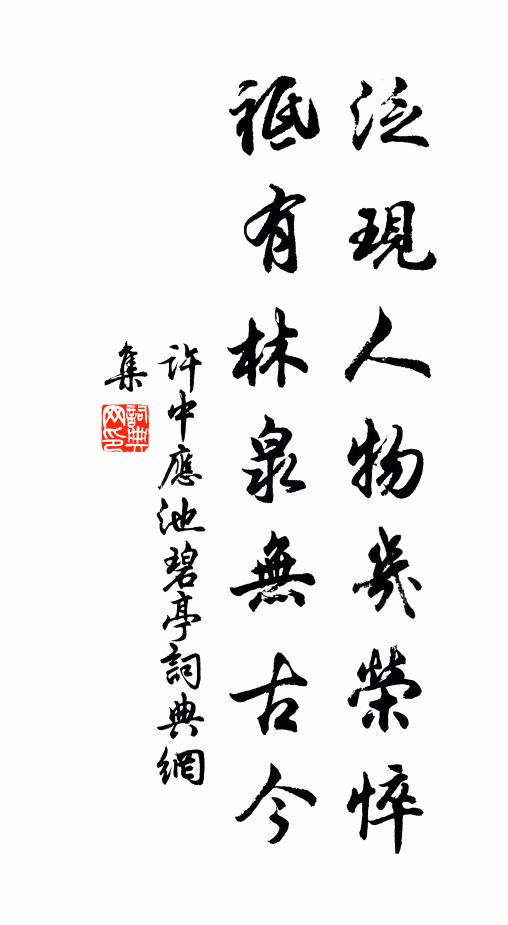 泛現人物幾榮悴
祗有林泉無古今
許中應池碧亭詞典網
集
詞典
网印